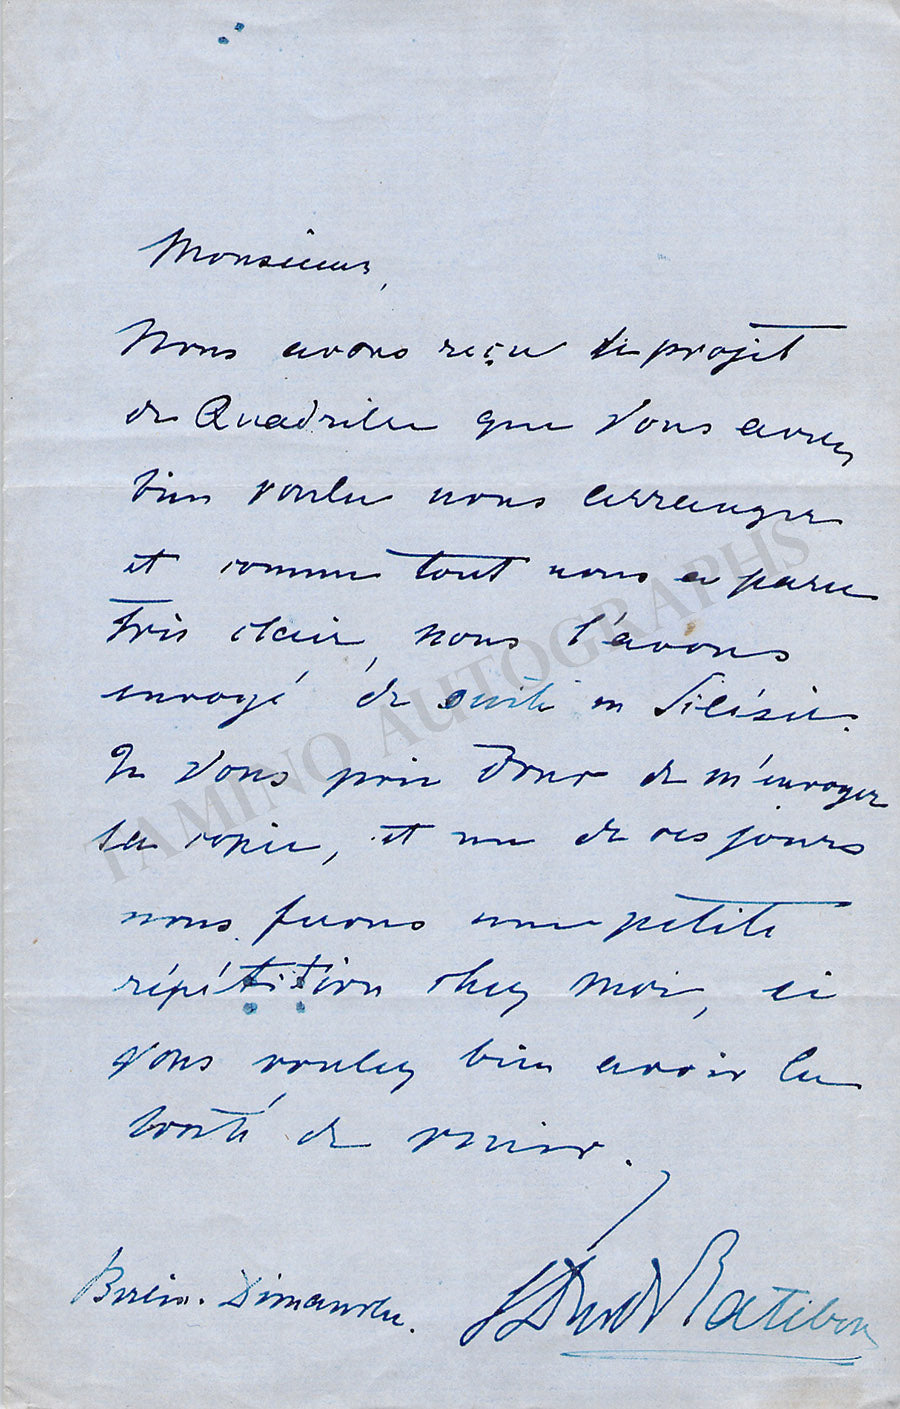 Monsieur,
Nous avons reçu le projet
de Quadrille que Vous avez
bien voulu nous arranger
et comme tout nous a paru
très clair, nous l'avons
envoyé de suite en Silésie.
Je Vous prie donc de m'envoyer
sa copie, et un de ces jours
nous ferons une petite
répétition chez moi, si
Vous voulez bien avoir la
bonté de venir.
Berlin. Dimanche.
Ratibor
TAMINO AUTOGRAPHS